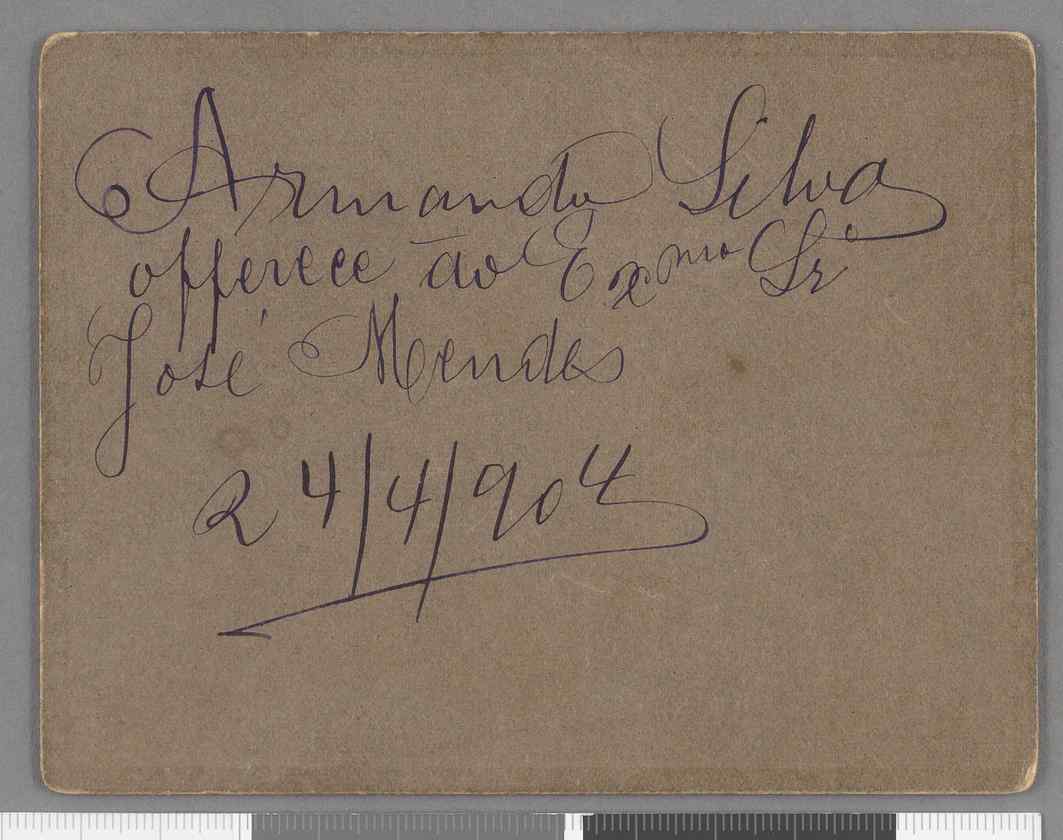 Armando Silva
offerece ao Exmo Sr
José Mendes
24/4/904